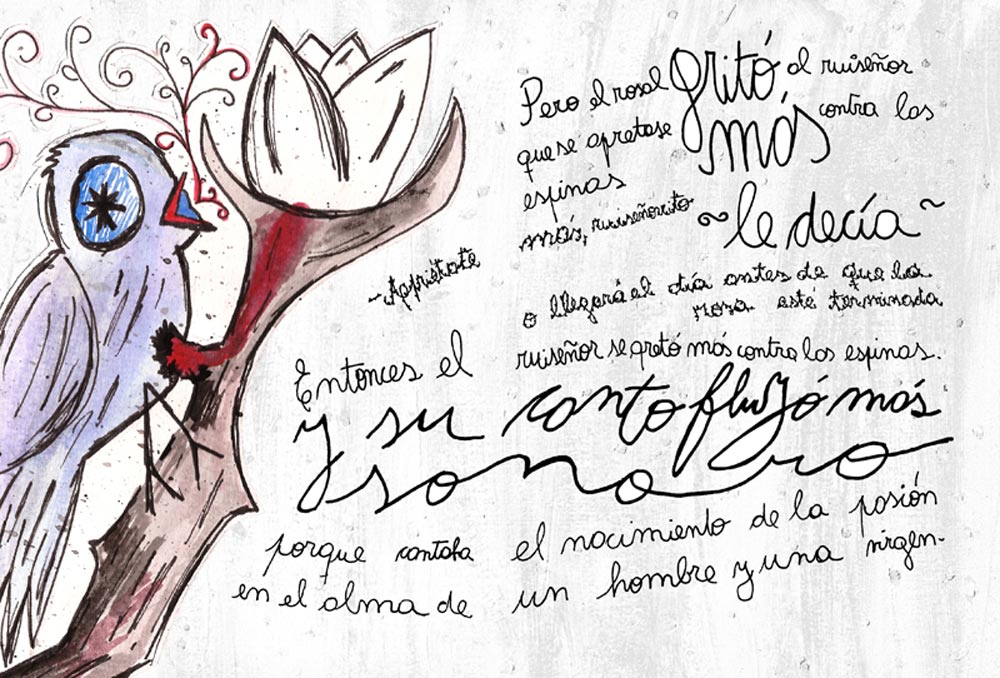 Pero el rosal gritó al ruiseñor
que se apretase más contra las
espinas
-Apriétate más, ruiseñorito ~le decía~
o llegará el día antes de que la
rosa esté terminada
Entonces el ruiseñor se apretó más contra las espinas.
y su canto fluyó más
sonoro
porque cantaba el nacimiento de la pasión
en el alma de un hombre y una virgen.